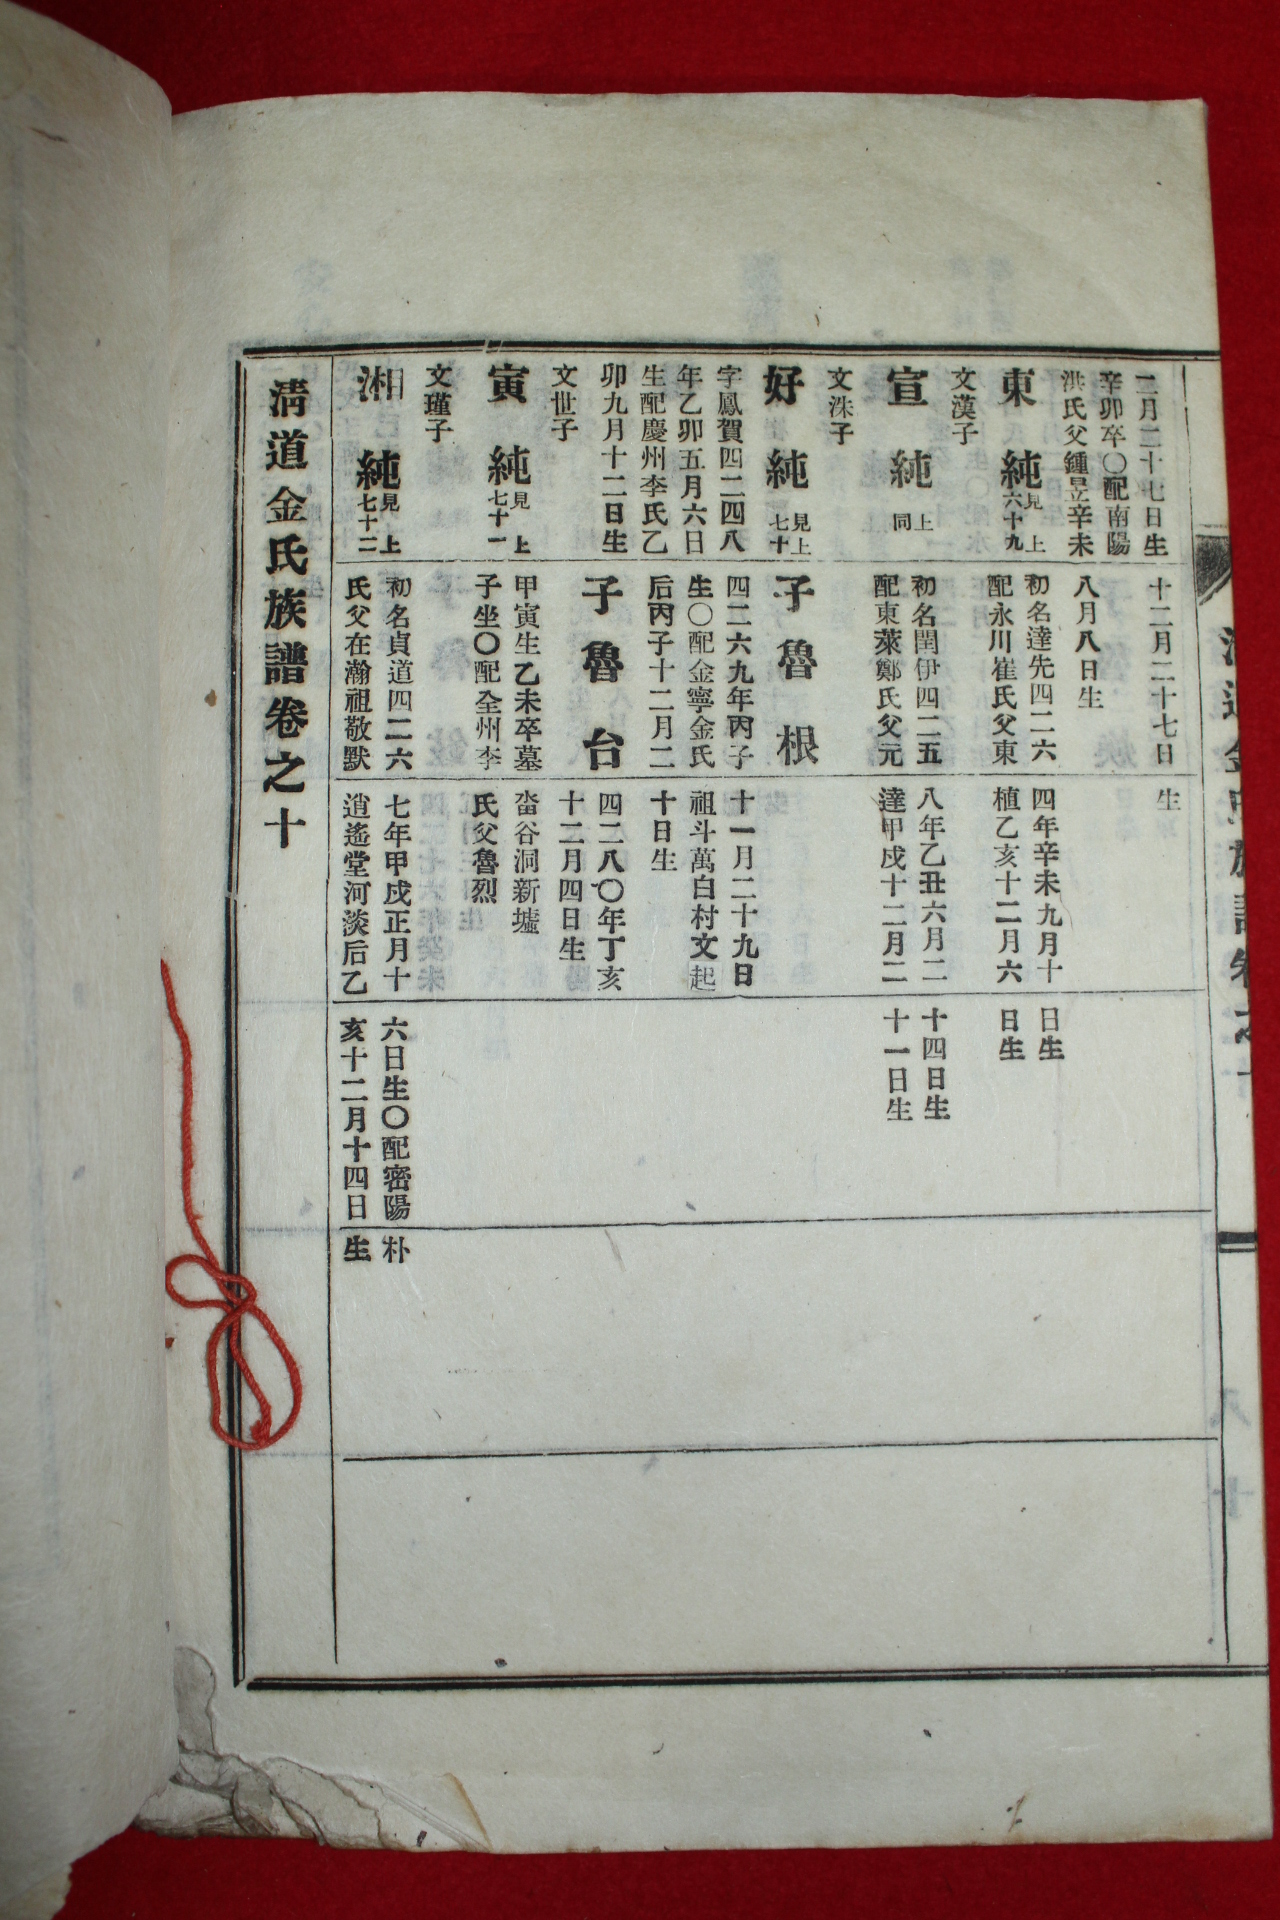 二月二十七日生
辛卯卒〇配南陽
洪氏父鍾昱辛未
東純見上六十九
文漢子
宣純上同
文洙子
好純見上七十
字鳳賀四二四八
年乙卯五月六日
生配慶州李氏乙
卯九月十二日生
文世子
寅純見上七十一
文瑾子
湘純見上七十二
十二月二十七日
八月八日生
初名達先四二六
配永川崔氏父東
初名閏伊四二五
配東萊鄭氏父元
子魯根
四二六九年丙子
生〇配金寧金氏
后丙子十二月二
子魯台
甲寅生乙未卒墓
子坐〇配全州李
初名貞道四二六
氏父在瀚祖敬默
生
四年辛未九月十
植乙亥十二月六
八年乙丑六月二
達甲戌十二月二
十一月二十九日
祖斗萬白村文起
十日生
四二八〇年丁亥
十二月四日生
畓谷洞新墟
氏父魯烈
七年甲戌正月十
逍遙堂河淡后乙
日生
日生
十四日生
十一日生
六日生〇配密陽
亥十二月十四日
朴
生
淸道金氏族譜卷之十